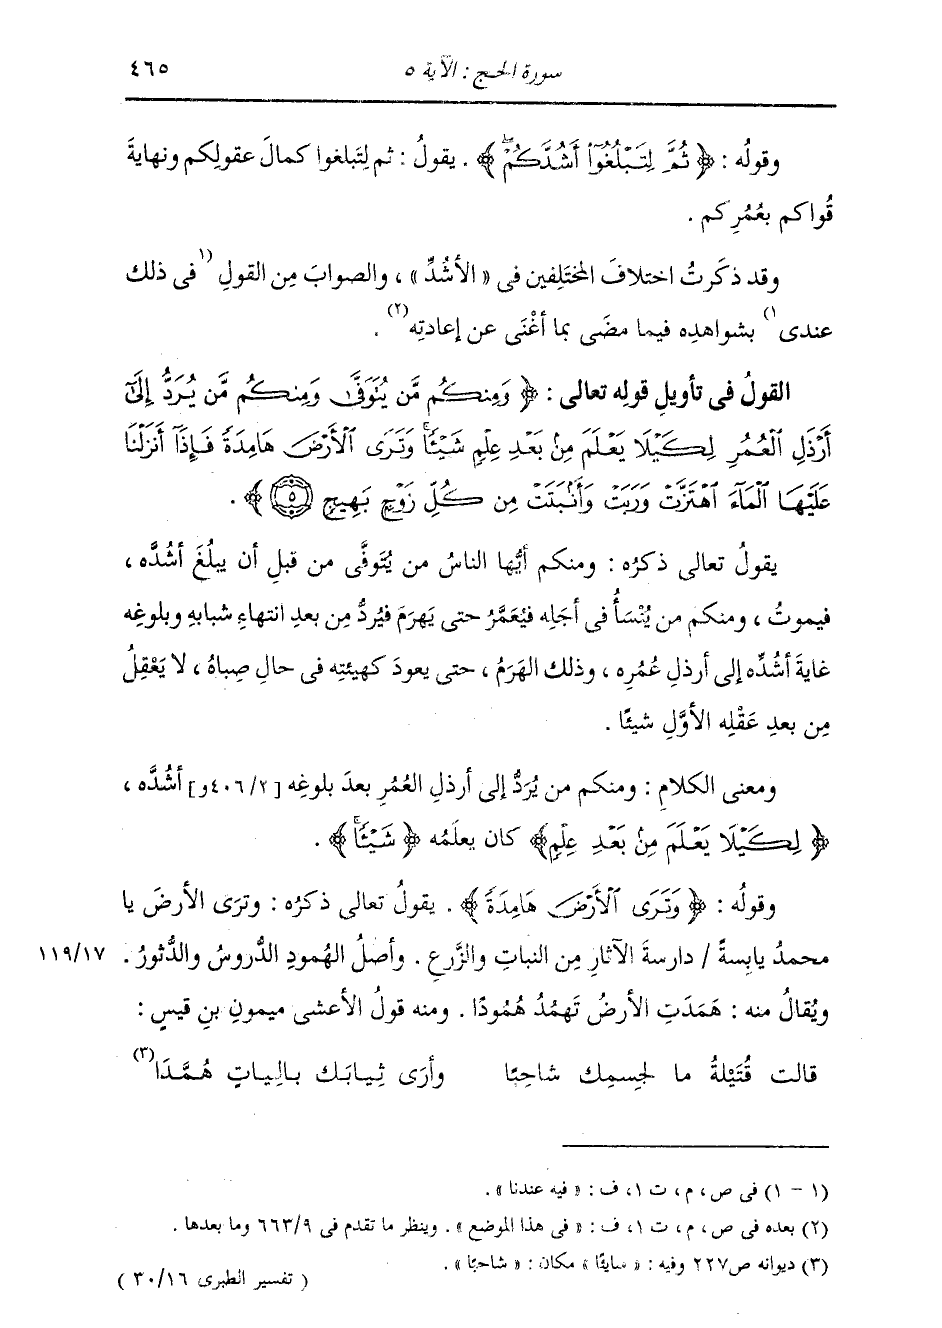 سورة الحج : الآية ٥ ٤٦٥
وقولُه : ﴿ ثُمَّ لِتَبْلُغُوٓا۟ أَشُدَّكُمْ ﴾ . يقولُ : ثم لِتَبلغوا كمالَ عقولِكم ونهايةَ
قُواكم بعُمُرِكم .
وقد ذكَرتُ اختلافَ المختَلِفين فى « الأشُدِّ » ، والصوابَ مِن القولِ (١ فى ذلك
عندى ١) بشواهدِه فيما مضَى بما أغْنَى عن إعادتِه (٢) .
القولُ فى تأويلِ قولِه تعالى : ﴿ وَمِنكُم مَّن يُتَوَفَّىٰ وَمِنكُم مَّن يُرَدُّ إِلَىٰٓ
أَرْذَلِ ٱلْعُمُرِ لِكَيْلَا يَعْلَمَ مِنۢ بَعْدِ عِلْمٍ شَيْـًٔا ۚ وَتَرَى ٱلْأَرْضَ هَامِدَةً فَإِذَآ أَنزَلْنَا
عَلَيْهَا ٱلْمَآءَ ٱهْتَزَّتْ وَرَبَتْ وَأَنۢبَتَتْ مِن كُلِّ زَوْجٍۭ بَهِيجٍ ٥ ﴾ .
يقولُ تعالى ذكرُه : ومنكم أيُّها الناسُ من يُتَوفَّى من قبلِ أن يبلُغَ أشُدَّه ،
فيموتُ ، ومنكم من يُنْسَأُ فى أجَلِه فيُعَمَّرُ حتى يَهرَمَ فيُردُّ مِن بعدِ انتهاءِ شبابهِ وبلوغِه
غايةَ أشُدِّه إلى أرذلِ عُمُرِه ، وذلك الهَرَمُ ، حتى يعودَ كهيئتِه فى حالِ صِباهُ ، لا يَعْقِلُ
مِن بعدِ عَقْلِه الأوَّلِ شيئًا .
ومعنى الكلامِ : ومنكم من يُرَدُّ إلى أرذلِ العُمُرِ بعدَ بلوغِه [٤٠٦/٢و] أشُدَّه ،
﴿ لِكَيْلَا يَعْلَمَ مِنۢ بَعْدِ عِلْمٍ ﴾ كان يعلَمُه ﴿ شَيْـًٔا ۚ ﴾ .
وقولُه : ﴿ وَتَرَى ٱلْأَرْضَ هَامِدَةً ﴾ . يقولُ تعالى ذكرُه : وترَى الأرضَ يا
محمدُ يابِسةً / دارسةَ الآثارِ مِن النباتِ والزَّرعِ . وأصلُ الهُمودِ الدُّروسُ والدُّثورُ . ١١٩/١٧
ويُقالُ منه : هَمَدَتِ الأرضُ تَهمُدُ هُمُودًا . ومنه قولُ الأعشى ميمونِ بنِ قيسٍ :
قالت قُتَيْلةُ ما لجِسمِك شاحِبًا وأرَى ثِيابَك بالِياتٍ هُمَّدَا (٣)
(١ - ١) فى ص ، م ، ت ١، ف : « فيه عندنا » .
(٢) بعده فى ص ، م ، ت ١، ف : « فى هذا الموضع » . وينظر ما تقدم فى ٦٦٣/٩ وما بعدها .
(٣) ديوانه ص٢٢٧ وفيه : « سايئًا » مكان : « شاحبًا » .
( تفسير الطبرى ٣٠/١٦ )